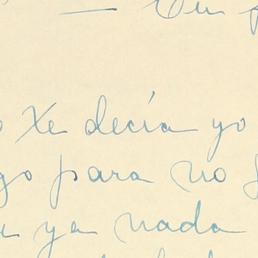 — En
Xe decía yo
go para no
ya nada